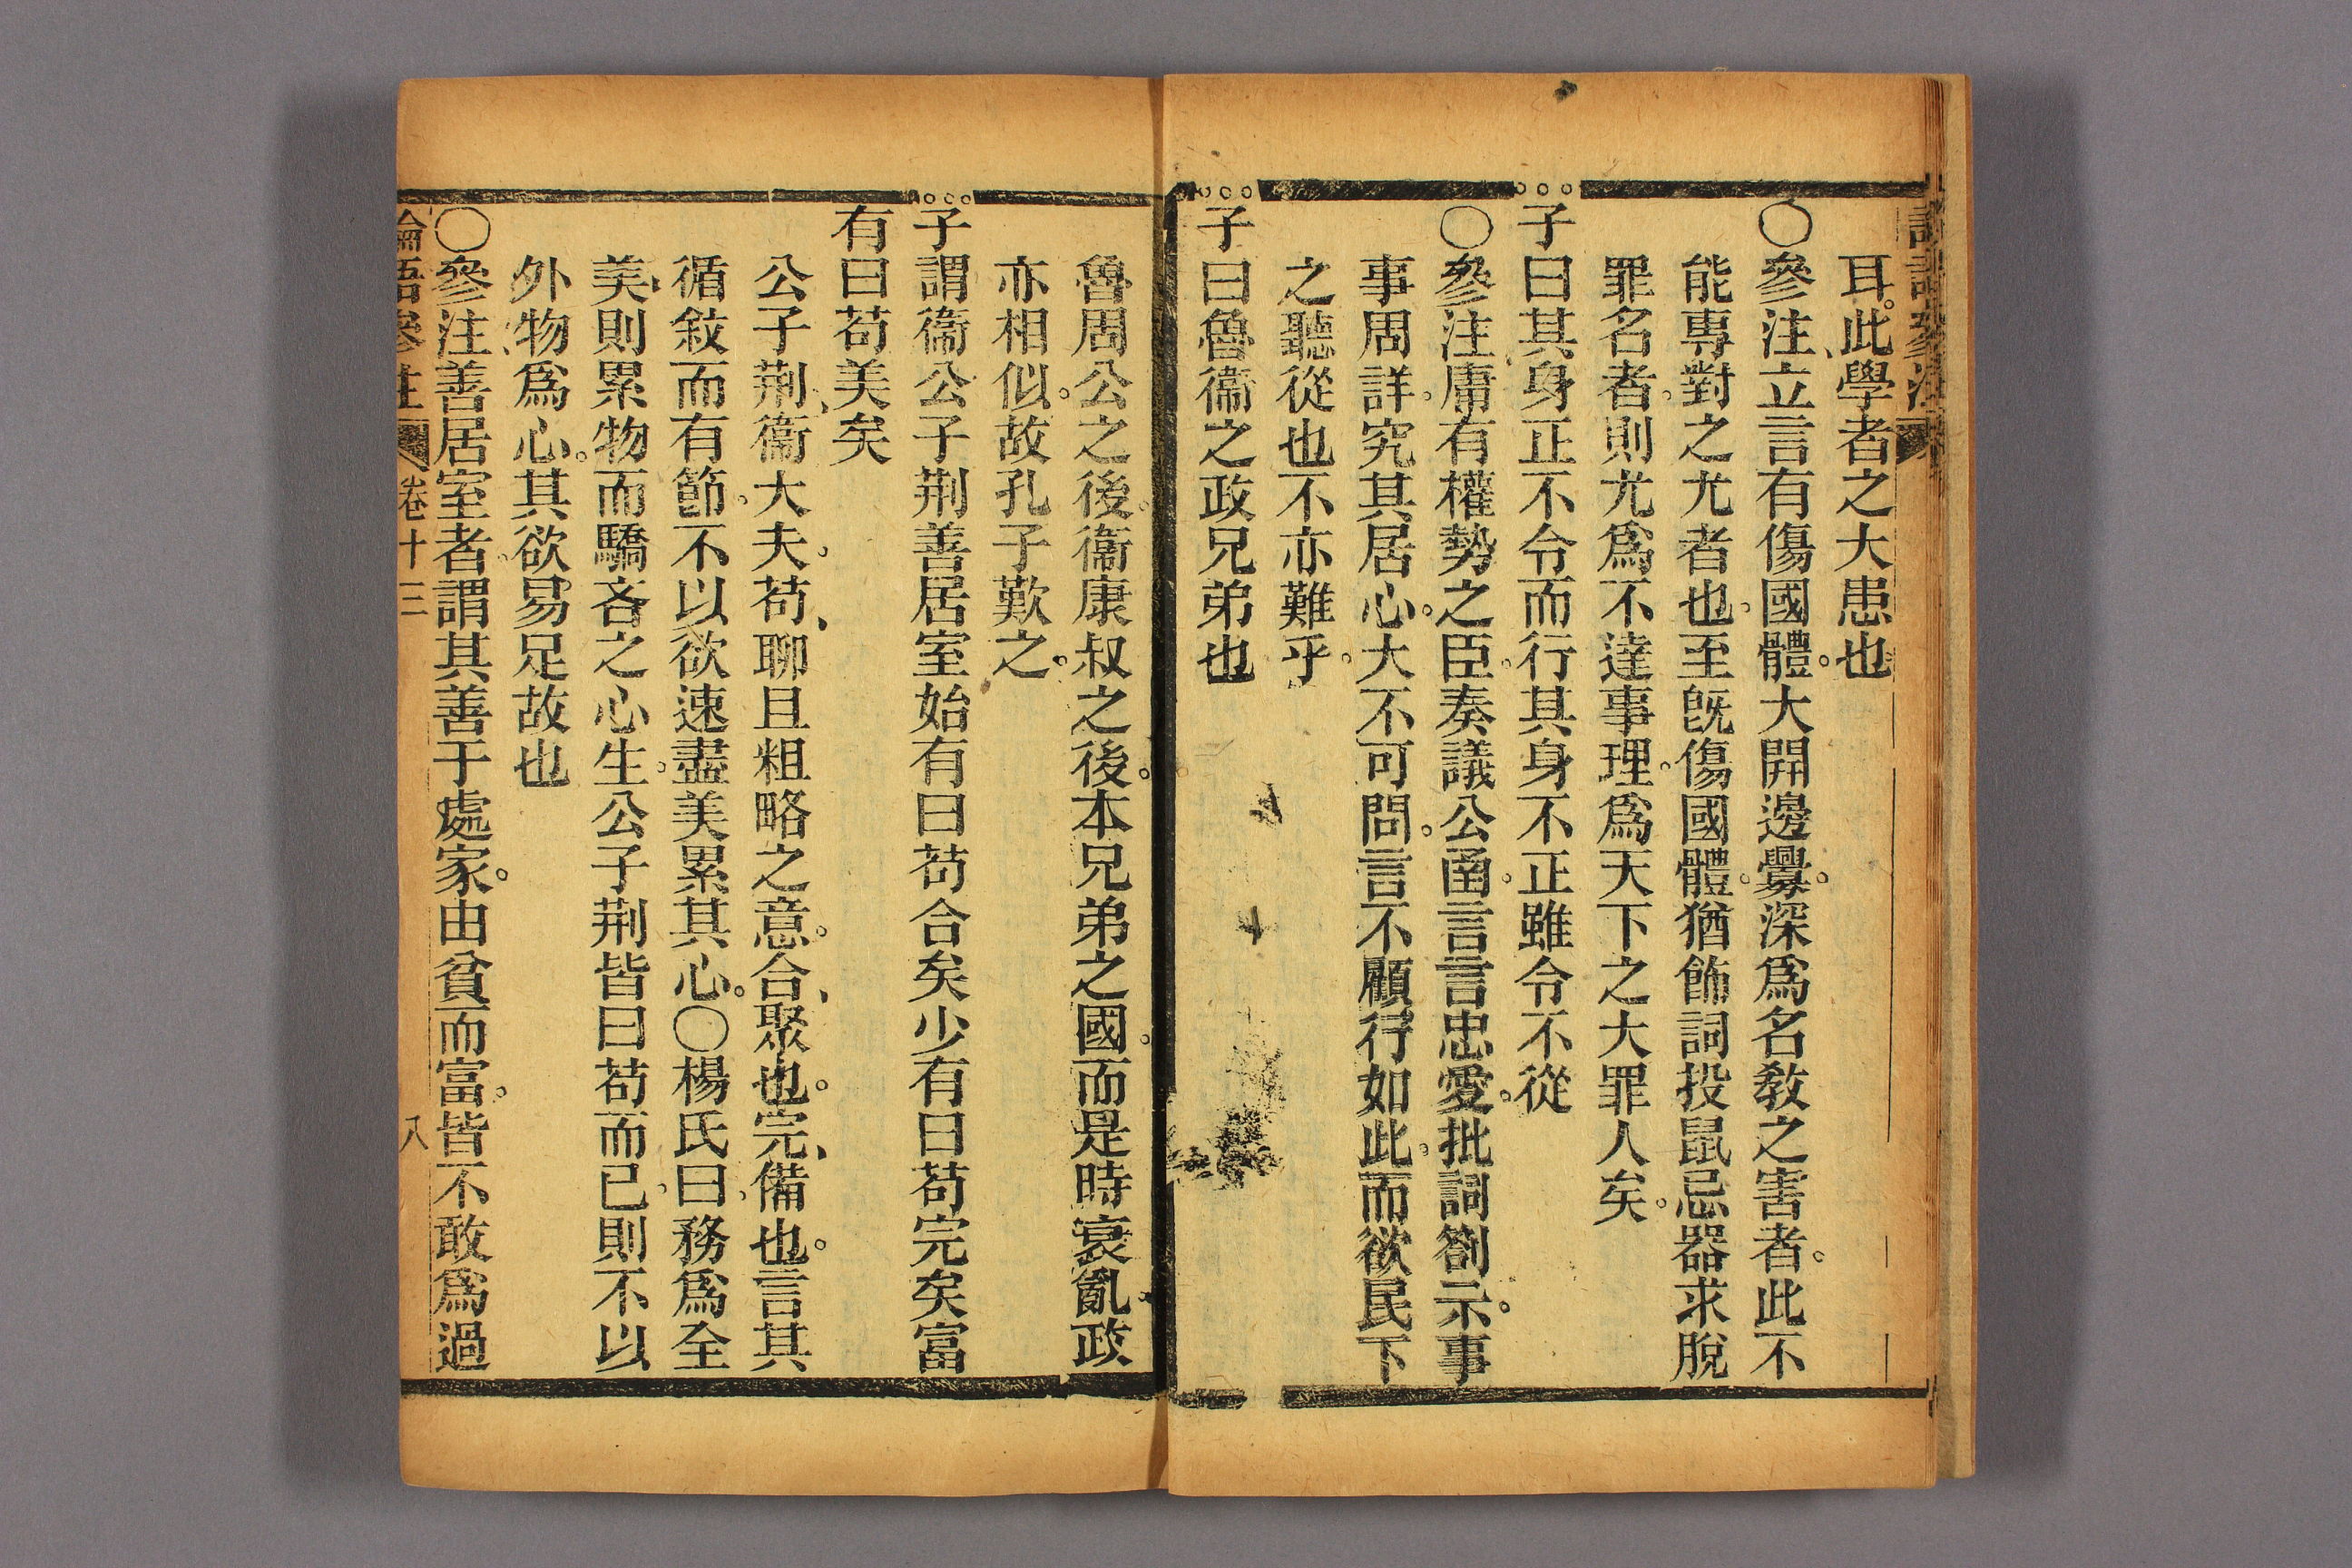 耳。此學者之大患也
〇參注、立言有傷國體。大開邊釁。深爲名教之害者。此不
能專對之尤者也。至旣傷國體。猶飾詞投鼠忌器求脫
罪名者。則尤爲不達事理。爲天下之大罪人矣。
子曰其身正不令而行其身不正雖令不從
〇參注、庸有權勢之臣。奏議公函。言言忠愛。批詞劄示。事
事周詳。究其居心。大不可問。言不顧行如此。而欲民下
之聽從也不亦難乎。
子曰魯衞之政兄弟也
魯周公之後。衞康叔之後。本兄弟之國。而是時衰亂。政
亦相似。故孔子歎之。
子謂衞公子荆善居室始有曰苟合矣少有曰苟完矣富
有曰苟美矣
公子荆、衞大夫。苟、聊且粗略之意。合、聚也。完、備也。言其
循敘而有節。不以欲速盡美累其心。〇楊氏曰。務爲全
美。則累物而驕吝之心生。公子荆皆曰苟而已。則不以
外物爲心。其欲易足故也
〇參注、善居室者。謂其善于處家。由貧而富。皆不敢爲過
論語參注 卷十三 八